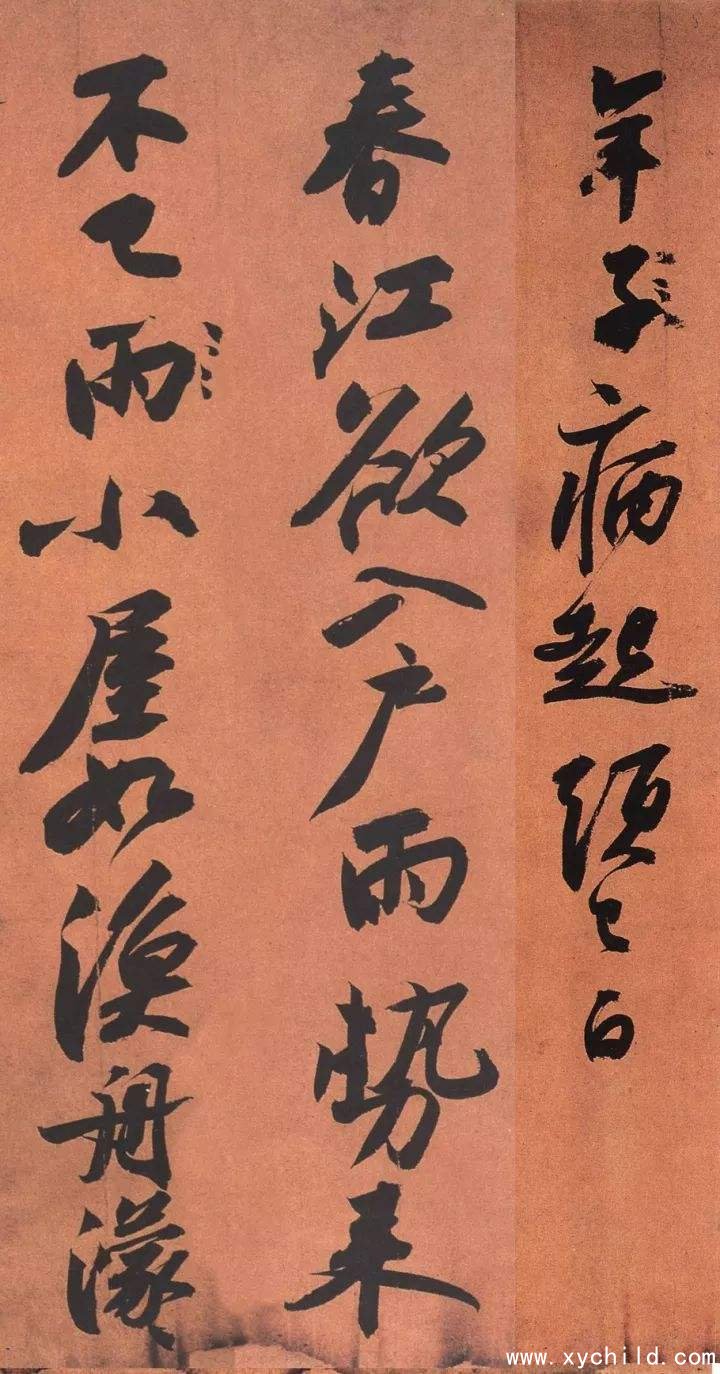 年子病起頭已白
春江欲入戶雨勢來
不已雨小屋如漁舟濛
www.xychild.com